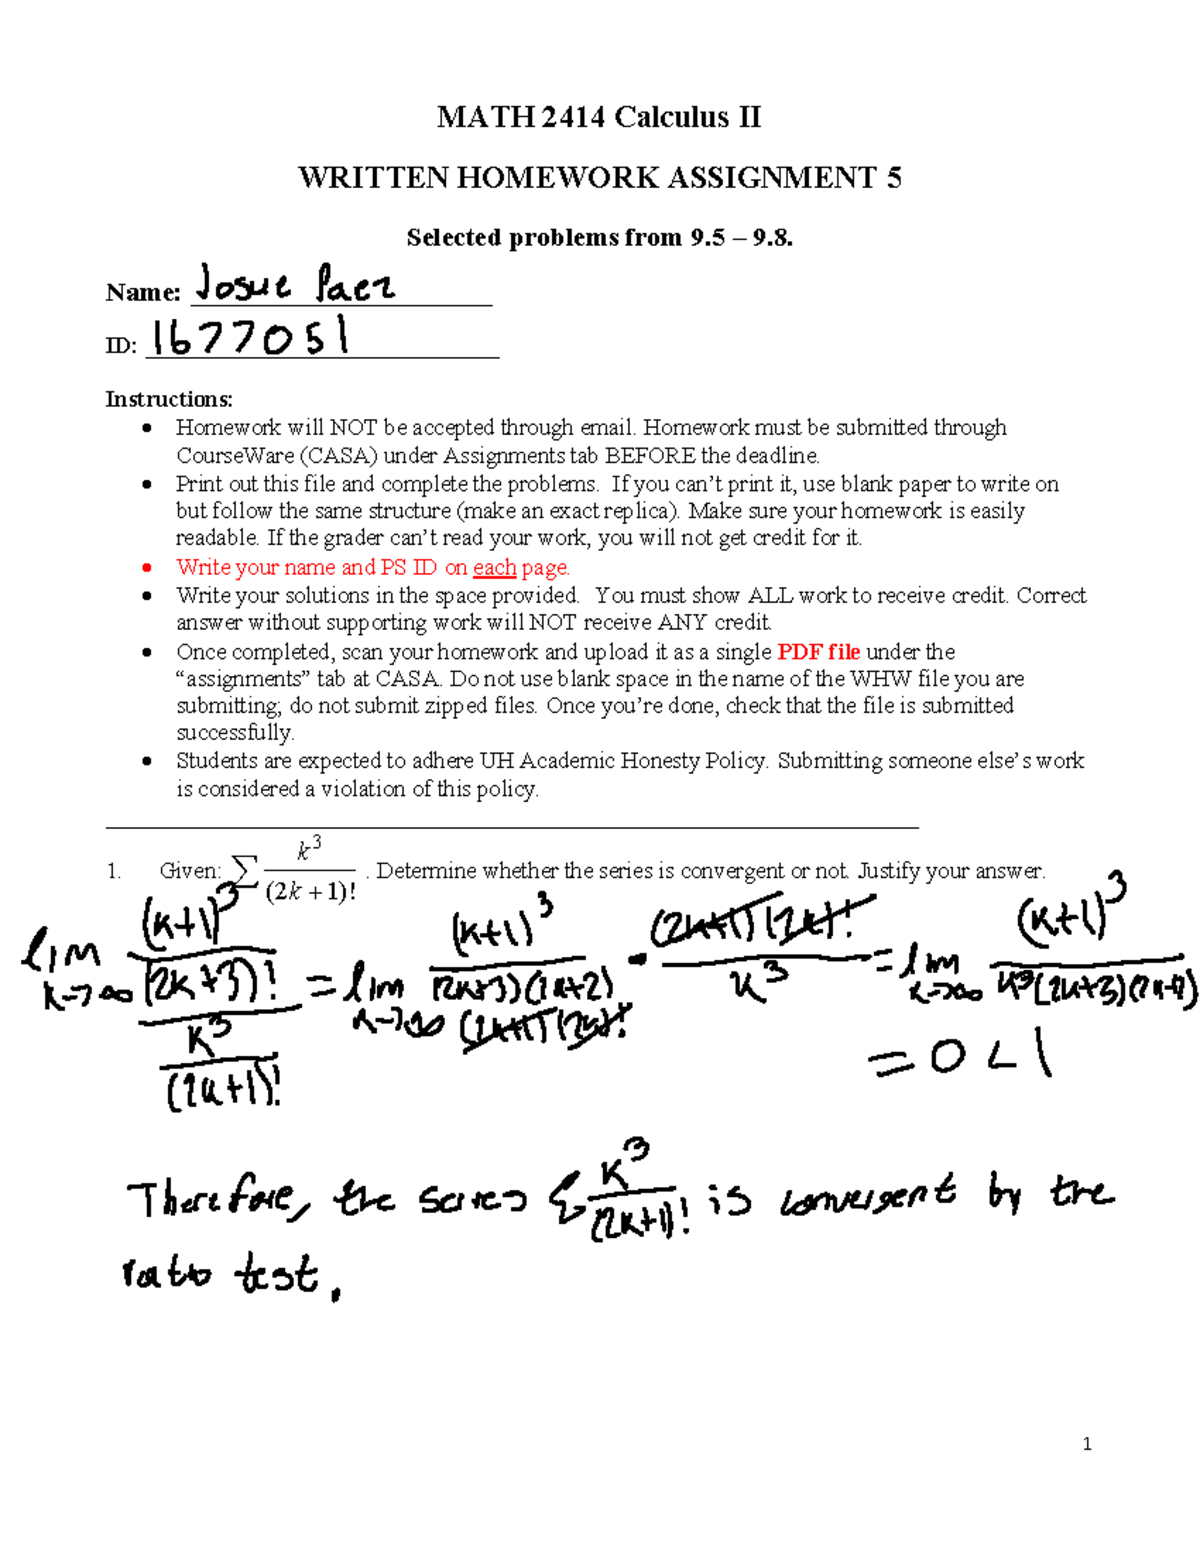 MATH 2414 Calculus II
WRITTEN HOMEWORK ASSIGNMENT 5
Selected problems from 9.5 – 9.8.
Name: Josue Paez
ID: 1677051
Instructions:
• Homework will NOT be accepted through email. Homework must be submitted through
CourseWare (CASA) under Assignments tab BEFORE the deadline.
• Print out this file and complete the problems. If you can't print it, use blank paper to write on
but follow the same structure (make an exact replica). Make sure your homework is easily
readable. If the grader can't read your work, you will not get credit for it.
• Write your name and PS ID on each page.
• Write your solutions in the space provided. You must show ALL work to receive credit. Correct
answer without supporting work will NOT receive ANY credit.
• Once completed, scan your homework and upload it as a single PDF file under the
“assignments” tab at CASA. Do not use blank space in the name of the WHW file you are
submitting; do not submit zipped files. Once you're done, check that the file is submitted
successfully.
• Students are expected to adhere UH Academic Honesty Policy. Submitting someone else's work
is considered a violation of this policy.
1. Given: ∑ k³/(2k + 1)! . Determine whether the series is convergent or not. Justify your answer.
lim k→∞ ((k+1)³/(2k+3)!)/(k³/(2k+1)!) = lim k→∞ (k+1)³/((2k+3)(2k+2)(2k+1)(2k)!) · (2k+1)(2k)!/k³ = lim k→∞ (k+1)³/(k³(2k+3)(2k+2))
= 0 < 1
Therefore, the series ∑ k³/(2k+1)! is convergent by the
ratio test.
1